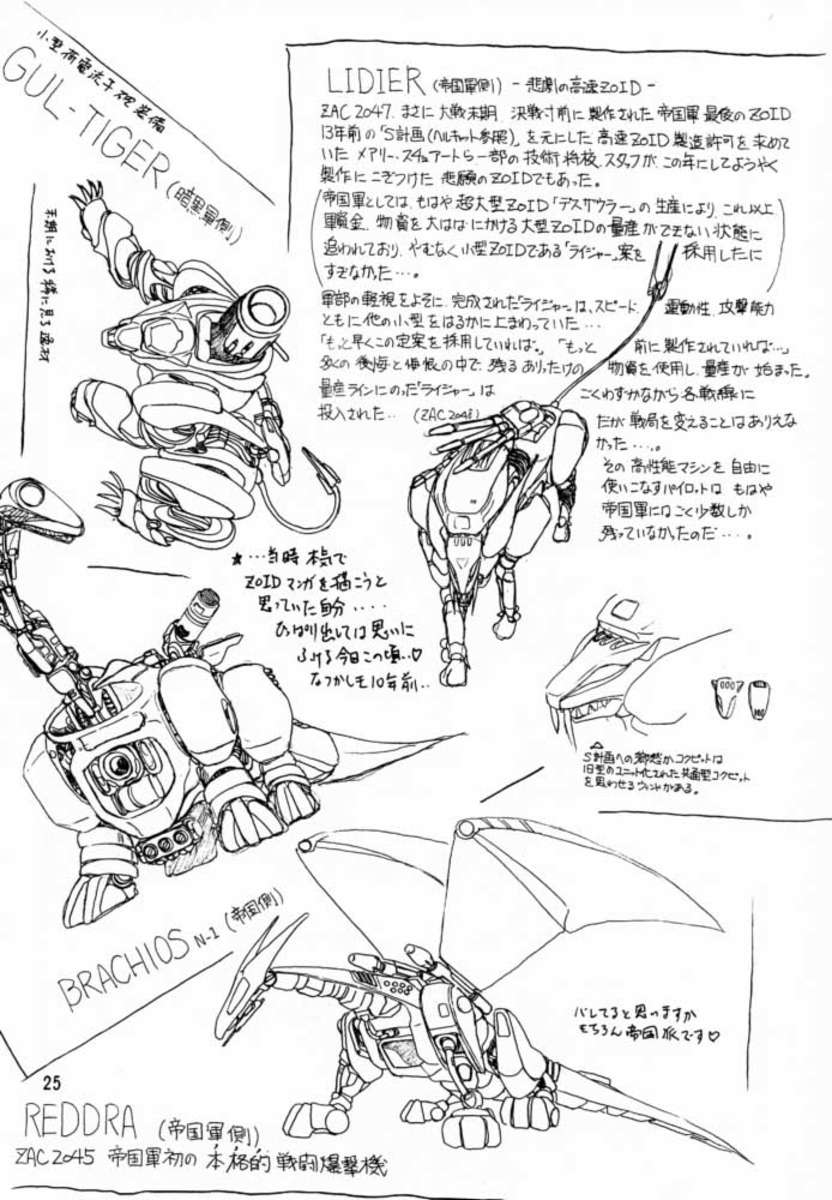 小型荷電流子砲装備
GUL-TIGER (暗黒軍側)
末期における稀に見る逸材
LIDIER (帝国軍側) - 悲劇の高速ZOID -
ZAC 2047. まさに大戦末期 決戦寸前に製作された帝国軍最後のZOID
13年前の「S計画(ヘルキャット参照)」を元にした高速ZOID製造許可を求めて
いたメアリー・スチュアートら一部の技術将校、スタッフが この年にしてようやく
製作にこぎつけた 悲願のZOIDでもあった。
(帝国軍としては、もはや超大型ZOID「デスザウラー」の生産により、これ以上
軍資金、物資を大はばにかける大型ZOIDの量産ができない状態に
追われており、やむなく小型ZOIDである「ライジャー」案を 採用したに
すぎなかった…。)
軍部の軽視をよそに、完成された「ライジャー」は、スピード、運動性、攻撃能力
ともに他の小型をはるかに上まわっていた…
「もっと早くこの定案を採用していれば」。「もっと 前に製作されていれば…」
多くの後悔と悔恨の中で 残るありったけの 物資を使用し、量産が始まった。
量産ラインにのった「ライジャー」は ごくわずかながら各戦線に
投入された‥ (ZAC2048)
だが戦局を変えることはありえな
かった…。。
その高性能マシンを自由に
使いこなすパイロットは もはや
帝国軍にはごく少数しか
残っていなかったのだ…。
★…当時 本気で
ZOIDマンガを描こうと
思っていた自分‥‥
ひっぱり出しては思いに
ふける今日この頃‥♡
なつかしも10年前‥
△
S計画への郷愁か コクピットは
旧型のユニット化された共通型コクピット
を思わせるフシがある。
BRACHIOS N-1 (帝国側)
バレてると思いますが
もちろん帝国派です♡
25
REDDRA (帝国軍側)
ZAC 2045 帝国軍初の本格的戦闘爆撃機